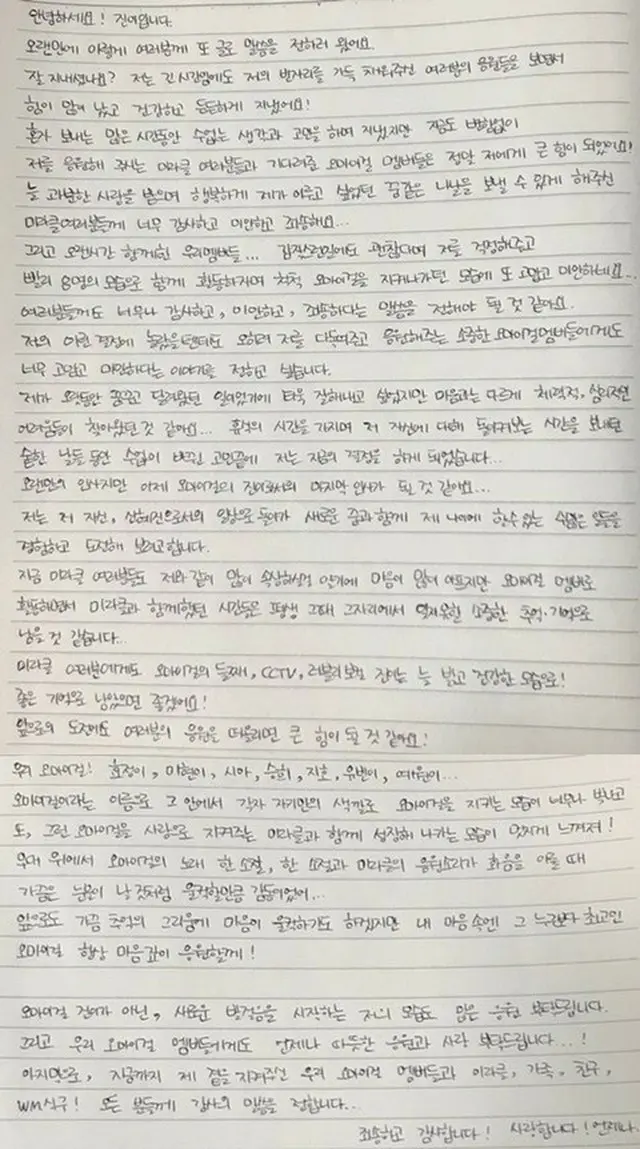 안녕하세요! 진이입니다.
오랜만에 이렇게 여러분께 또 글로 말씀을 전하러 왔어요.
잘 지내셨나요? 저는 긴 시간임에도 저의 빈자리를 가득 채워주신 여러분의 응원들을 보면서
힘이 많이 났고 건강하고 든든하게 지냈어요!
혼자 보내는 많은 시간동안 수없는 생각과 고민을 하며 지냈지만 지금도 변함없이
저를 응원해 주시는 미라클 여러분들과 기다려준 오마이걸 멤버들은 정말 저에게 큰 힘이 되었어요!
늘 과분한 사랑을 받으며 행복하게 제가 이루고 싶었던 꿈같은 나날을 보낼 수 있게 해주신
미라클여러분들께 너무 감사하고 미안하고 죄송해요...
그리고 오랜시간 함께한 우리멤버들... 갑작스런일에도 괜찮다며 저를 걱정해주고
빨리 8명의 모습으로 함께 활동하자며 척척 오마이걸을 지켜나가던 모습에 또 고맙고 미안하네요...
여러분들께도 너무나 감사하고, 미안하고, 죄송하다는 말씀을 전해야 될 것 같아요.
저의 이런 결정에 놀랐을텐데도 오히려 저를 다독여주고 응원해주는 소중한 오마이걸멤버들에게도
너무 고맙고 미안하다는 이야기를 전하고 싶습니다.
제가 오랫동안 꿈꾸고 달려왔던 일이었기에 더욱 잘해내고 싶었지만 마음과는 다르게 체력적, 심리적인
어려움들이 찾아왔던 것 같아요... 휴식의 시간을 가지며 저 자신에 대해 돌이켜보는 시간을 보내던
숱한 날들 동안 수없이 바뀐 고민끝에 저는 지금의 결정을 하게 되었습니다...
오랜만의 인사지만 이제 오마이걸의 진이로서의 마지막 인사가 될 것 같아요...
저는 저 자신, 신혜진으로서의 일상으로 돌아가 새로운 꿈과 함께 제 나이에 할수있는 수많은 일들을
경험하고 도전해 보려고합니다.
지금 미라클 여러분들도 저와같이 많이 속상하실걸 알기에 마음이 많이 아프지만 오마이걸 멤버로
활동하면서 미라클과 함께했던 시간들은 평생 그때 그자리에서 잊지못할 소중한 추억·기억으로
남을 것 같습니다..
미라클 여러분에게도 오마이걸의 둘째, CCTV, 러블리보컬 진이는 늘 밝고 건강한 모습으로!
좋은 기억으로 남았으면 좋겠어요!
앞으로의 도전에도 여러분의 응원을 떠올리면 큰 힘이 될 것 같아요!
우리 오마이걸! 효정이, 미현이, 시아, 승희, 지호, 유빈이, 예원이...
오마이걸이라는 이름으로 그 안에서 각자 자기만의 색깔로 오마이걸을 지키는 모습이 너무나 빛나고
또, 그런 오마이걸을 사랑으로 지켜주는 미라클과 함께 성장해 나가는 모습이 멋지게 느껴져!
무대 위에서 오마이걸의 노래 한 소절, 한 소절과 미라클의 응원소리가 화음을 이룰 때
가끔은 눈물이 날 것처럼 울컥할만큼 감동이었어...
앞으로도 가끔 추억의 그리움에 마음이 울컥하기도 하겠지만 내 마음속엔 그 누구보다 최고인
오마이걸 항상 마음깊이 응원할게!
오마이걸 진이가 아닌, 새로운 발걸음을 시작하는 저의 모습도 많은 응원 부탁드립니다.
그리고 우리 오마이걸 멤버들에게도 언제나 따뜻한 응원과 사랑 부탁드립니다...!
마지막으로, 지금까지 제 곁을 지켜주신 우리 오마이걸 멤버들과 미라클, 가족, 친구,
WM식구! 모든 분들께 감사의 말씀을 전합니다...
죄송하고 감사합니다! 사랑합니다! 언제나.